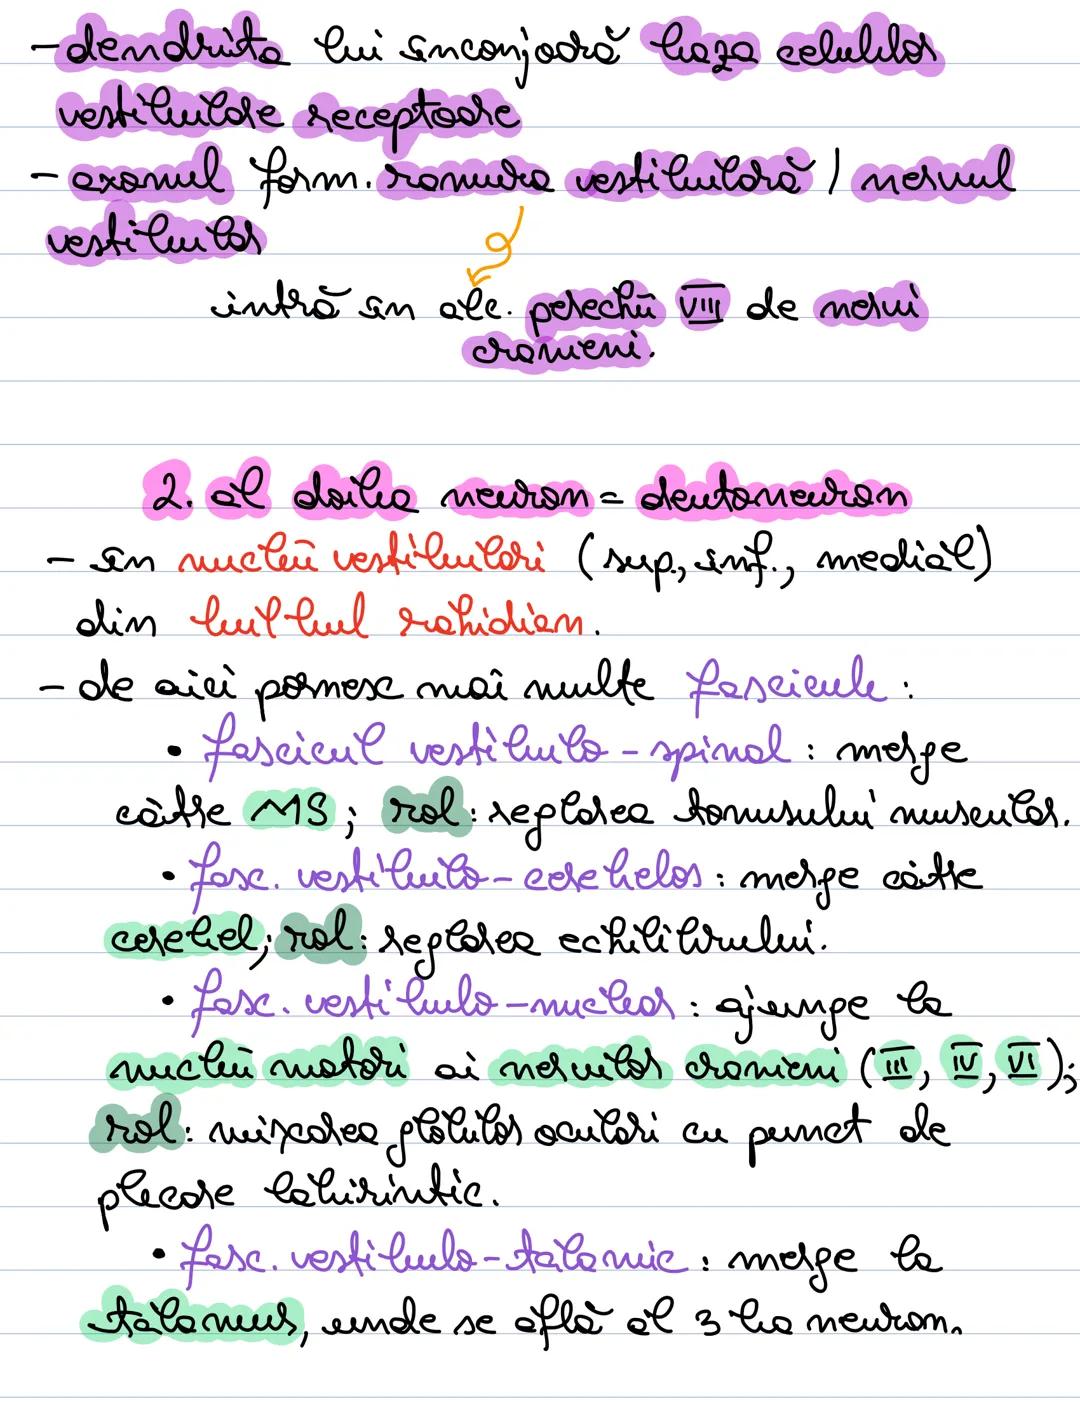 - dendrita lui înconjoară baza celulelor
vestibulare receptoare
- axonul form. ramura vestibulară / nervul
vestibular
intră în alc. perechii VIII de nervi
cranieni.
2. al doilea neuron = deutoneuron
- în nucleii vestibulari (sup, inf., medial)
din bulbul rahidian.
- de aici pornesc mai multe fascicule :
• fascicul vestibulo - spinal : merge
către MS ; rol : reglarea tonusului muscular.
• fasc. vestibulo - cerebelos : merge către
cerebel; rol : reglarea echilibrului.
• fasc. vestibulo - nuclear : ajunge la
nucleii motori ai nervilor cranieni (III, IV, VI);
rol : mișcarea globilor oculari cu punct de
plecare labirintic.
• fasc. vestibulo - talamic : merge la
talamus, unde se află al 3 lea neuron.